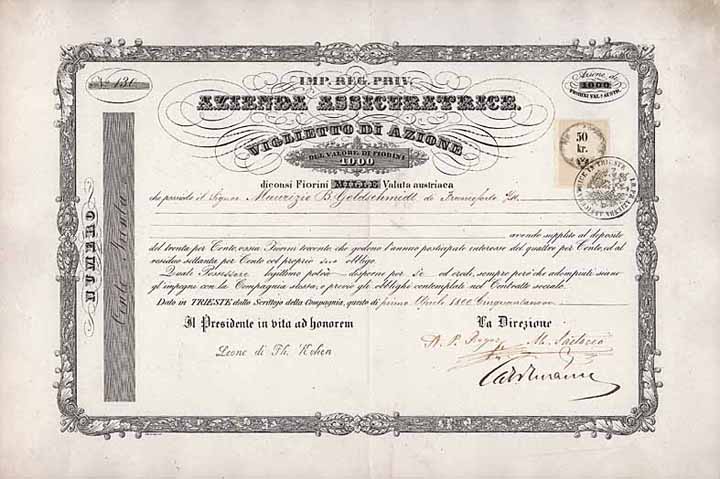 No. 131
Azione de
1000
FIORINI VAL. AUSTR.
IMP. REG. PRIV.
AZIENDA ASSICURATRICE.
VIGLIETTO DI AZIONE
DEL VALORE DI FIORINI
1000
diconsi Fiorini MILLE Valuta austriaca
50
kr.
che possiede il Signor Maurizio B. Goldschmidt di Francoforte s/M.
avendo supplito al deposito
del trenta per Cento, ossia Fiorini trecento, che godono l'annuo posticipato interesse del quattro per Cento, ed al
residuo settanta per Cento col proprio suo obbligo.
Quale Possessore legittimo potrà disporne per sè ed eredi, sempre però che adempiuti siano
gl'impegni con la Compagnia stessa, e previo gli obblighi contemplati nel Contratto sociale.
Dato in TRIESTE dallo Scrittojo della Compagnia, questo dì primo Aprile 1800 Cinquantanove
Il Presidente in vita ad honorem
La Direzione
Leone di Th. Kohen
NUMERO
Cento Trenta